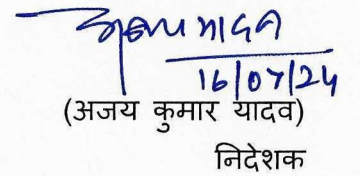 अजय यादव
16/07/24
(अजय कुमार यादव)
निदेशक